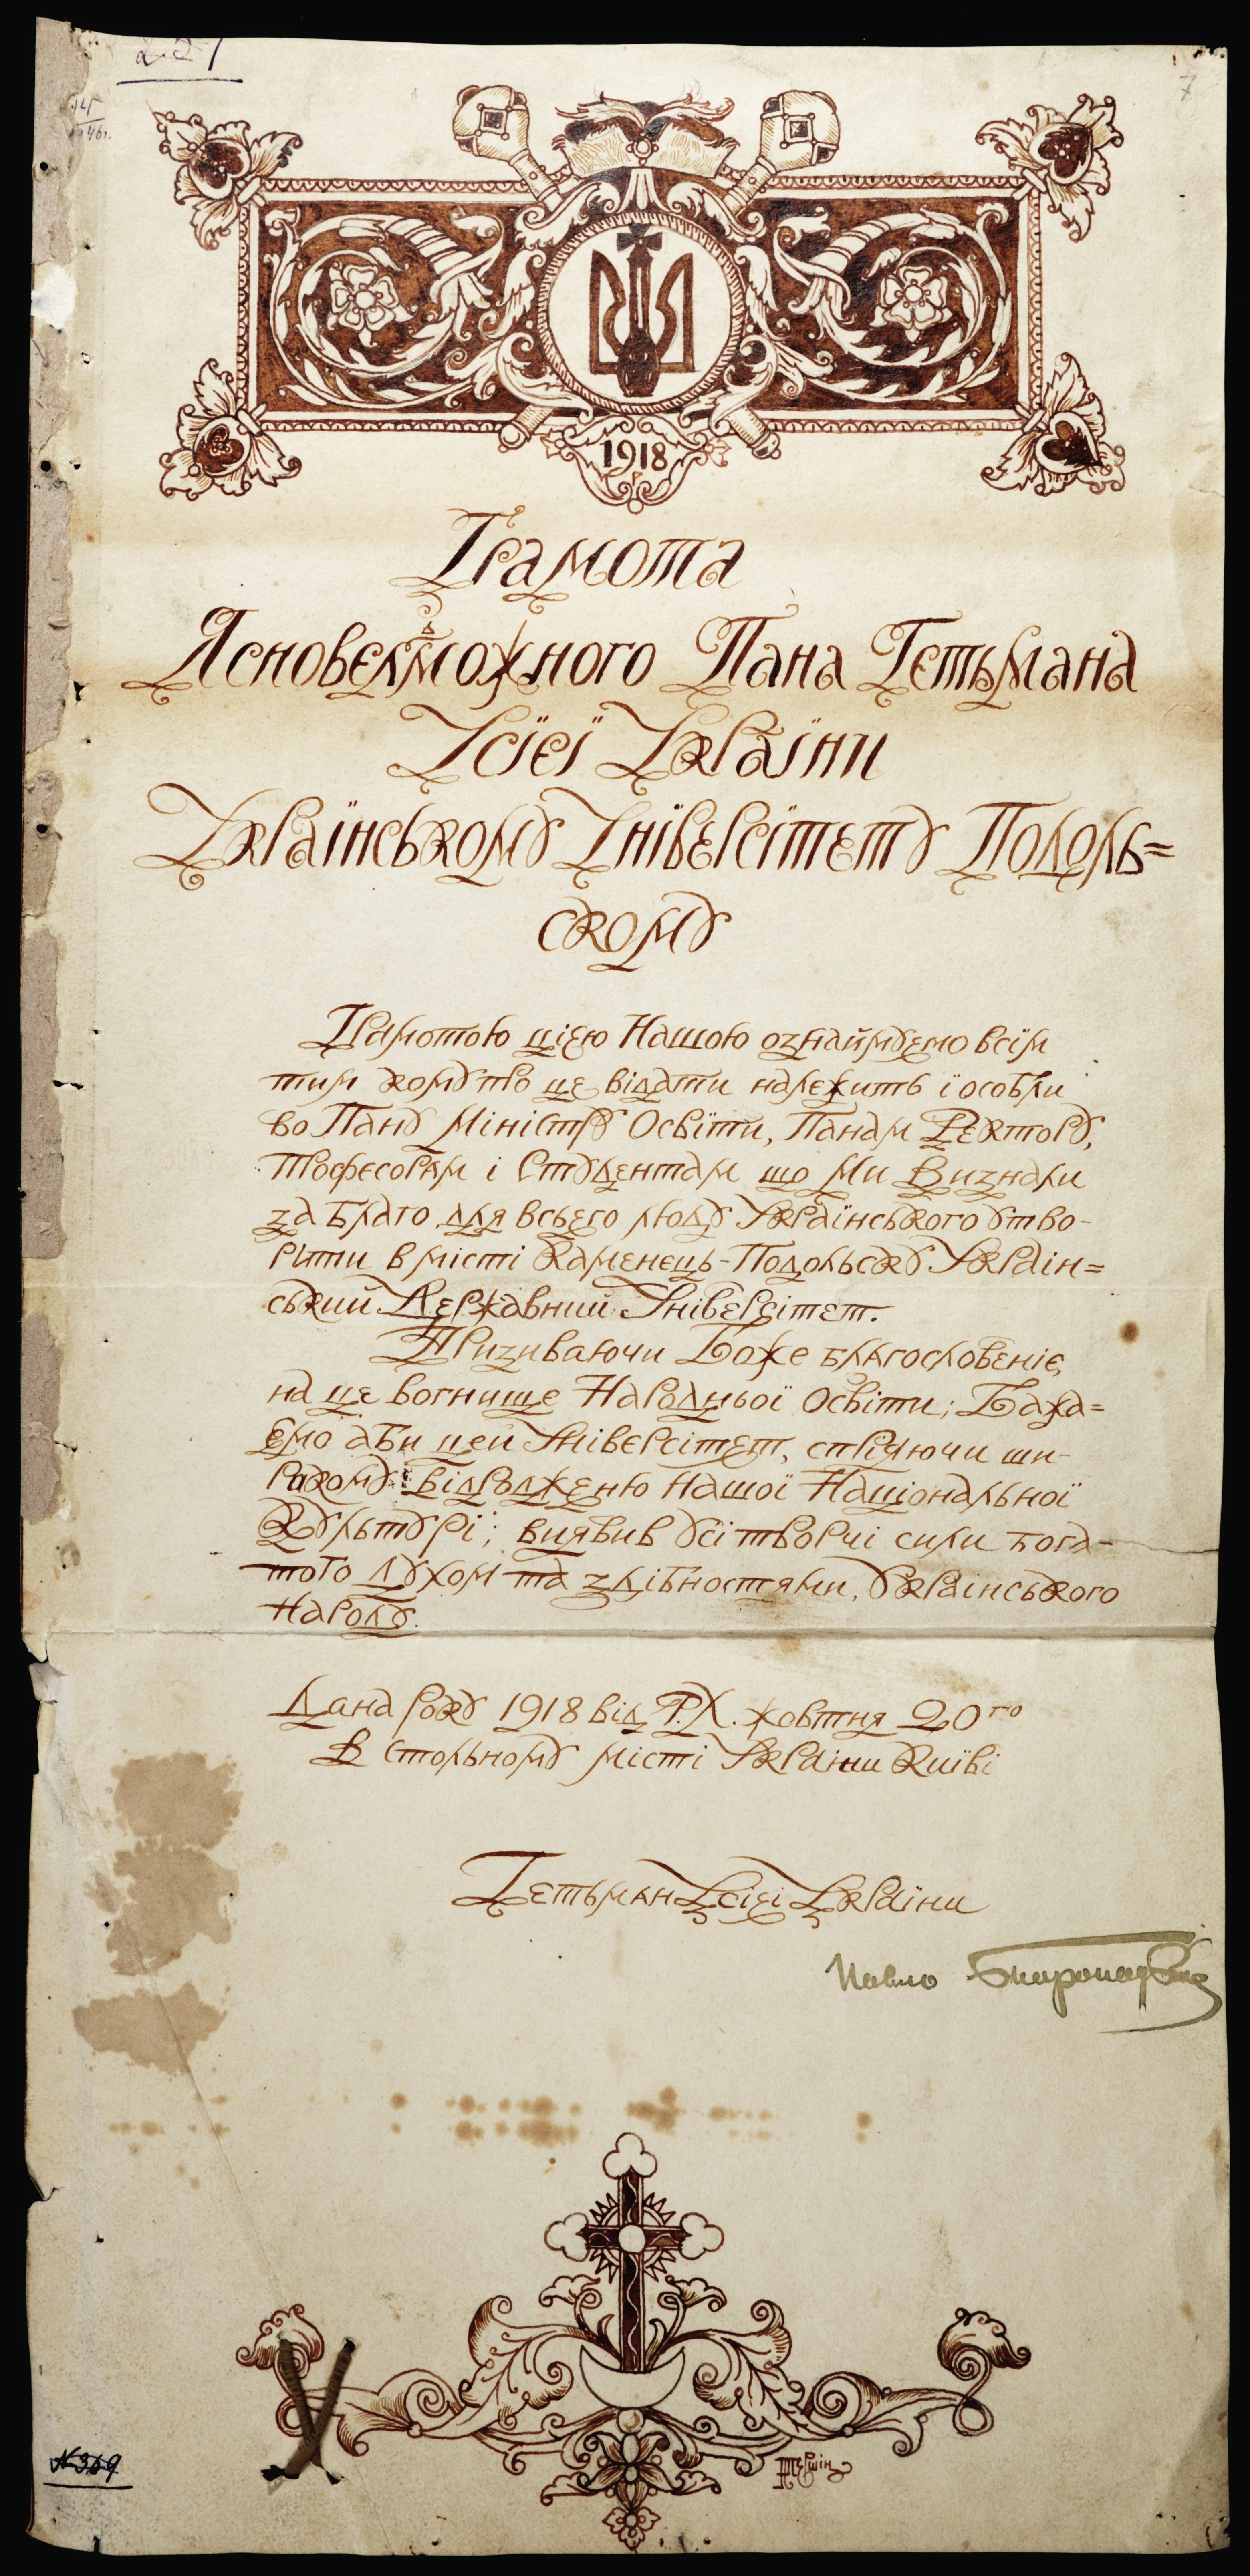 7
1918
Грамота
Ясновельможного Пана Гетьмана
Усієї України
Українському Університету Подоль=
скому
Грамотою цією Нашою ознаймуемо всім
тим кому про це відати належить і особли
во Пану Міністру Освіти, Панам Ректору,
Професорам і Студентам що Ми Визнали
за Благо для всього люду Українського ство-
ріти в місті Каменець-Подольску Україн=
ський Державний Університет.
Призиваючи Боже благословеніє
на це вогнище Народньої Освіти; Бажа=
ємо аби цей Університет, спріяючи ши-
рокому відродженю Нашої Національної
Культурі; виявив усі творчі сили бога-
того духом та здібностями, Українського
Народу.
Дана року 1918 від Р.Х. жовтня 20го
В Стольному місті України Київі
Гетьман Усієї України
Павло Скоропадський
№ 369